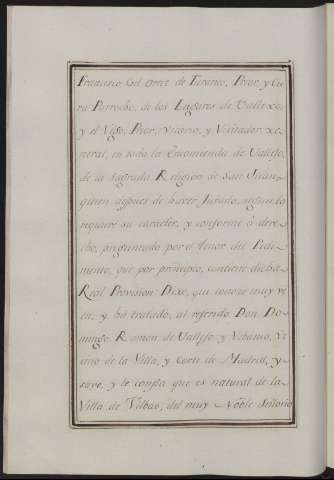 Francisco Gil Ortiz de Taranco, Prior, y Cu-
ra Perrocho, de los Lugares de Vallexo,
y el Vigo, Prior, Vicario, y Visitador, xe-
neral, en todo la Encomienda de Vallejo,
de la Sagrada Religion de San Juan,
quien despues de haver, Jurado, segun lo
requiere su caracter, y conforme à dere-
cho, preguntado por el tenor del Pedi-
mento, que por principio, contiene dicha
Real Provision Dixo, que conoce muy vi
en, y há tratado, al referido, Don Do-
mingo, Ramon de Vallejo, y Vrbano, Ve
cino de la Villa, y Corte de Madrid, y
save, y le consta que es natural de la
Villa de Vilbao, del muy Noble Señorio